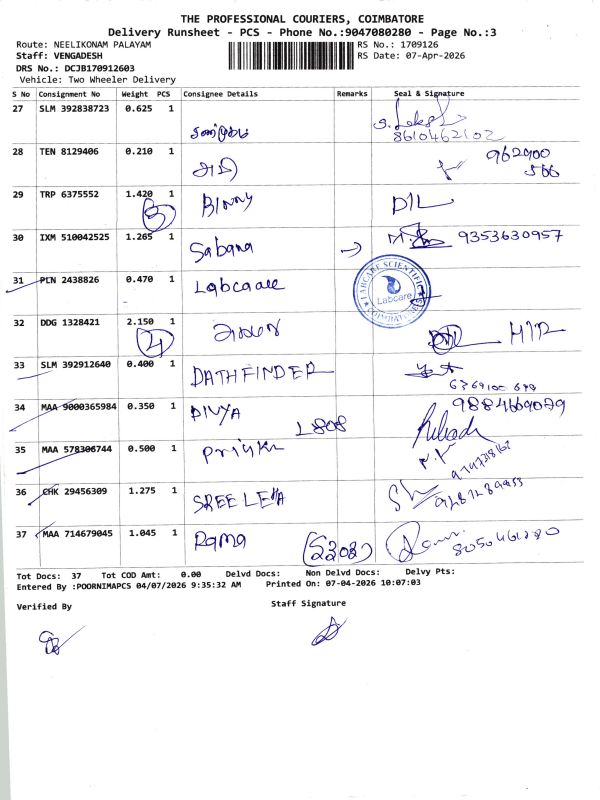 THE PROFESSIONAL COURIERS, COIMBATORE
Delivery Runsheet - PCS - Phone No.:9047080280 - Page No.:3
Route: NEELIKONAM PALAYAM RS No.: 1709126
Staff: VENGADESH RS Date: 07-Apr-2026
DRS No.: DCJB170912603
Vehicle: Two Wheeler Delivery
S No Consignment No Weight PCS Consignee Details Remarks Seal & Signature
27 SLM 392838723 0.625 1
8610462102
28 TEN 8129406 0.210 1 962900
566
29 TRP 6375552 1.420 1 Binny
3
30 IXM 510042525 1.265 1 Sabana 9353630957
31 PLN 2438826 0.470 1 Labcaare LABCARE SCIENTIFIC Labcare
32 DDG 1328421 2.150 1
4
33 SLM 392912640 0.400 1 PATHFINDER
34 MAA 9000365984 0.350 1 DIVYA L808 9884669079
35 MAA 578306744 0.500 1 Priya
36 CHK 29456309 1.275 1 SREE LEKA
37 MAA 714679045 1.045 1 Rama (S2303) 8050461280
Tot Docs: 37 Tot COD Amt: 0.00 Delvd Docs: Non Delvd Docs: Delvy Pts:
Entered By :POORNIMAPCS 04/07/2026 9:35:32 AM Printed On: 07-04-2026 10:07:03
Verified By Staff Signature